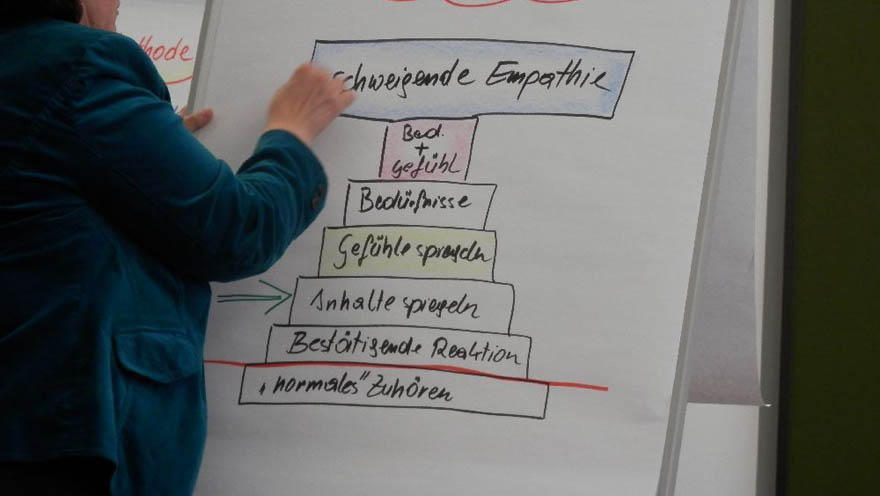 schweigende Empathie
Bed.
+
Gefühl
Bedürfnisse
Gefühle spiegeln
Inhalte spiegeln
Bestätigende Reaktion
„normales" Zuhören